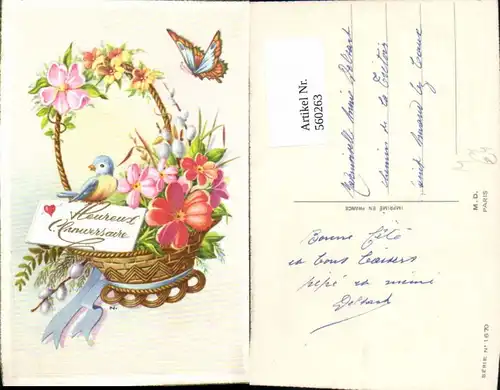 Heureux
Anniversaire
Artikel Nr.
560263
Mademoiselle Annie
chemin de la
IMPRIMÉ EN FRANCE
M.D.
PARIS
Bonne Fête
et bons baisers
pépé et mémé
SÉRIE N° 1670